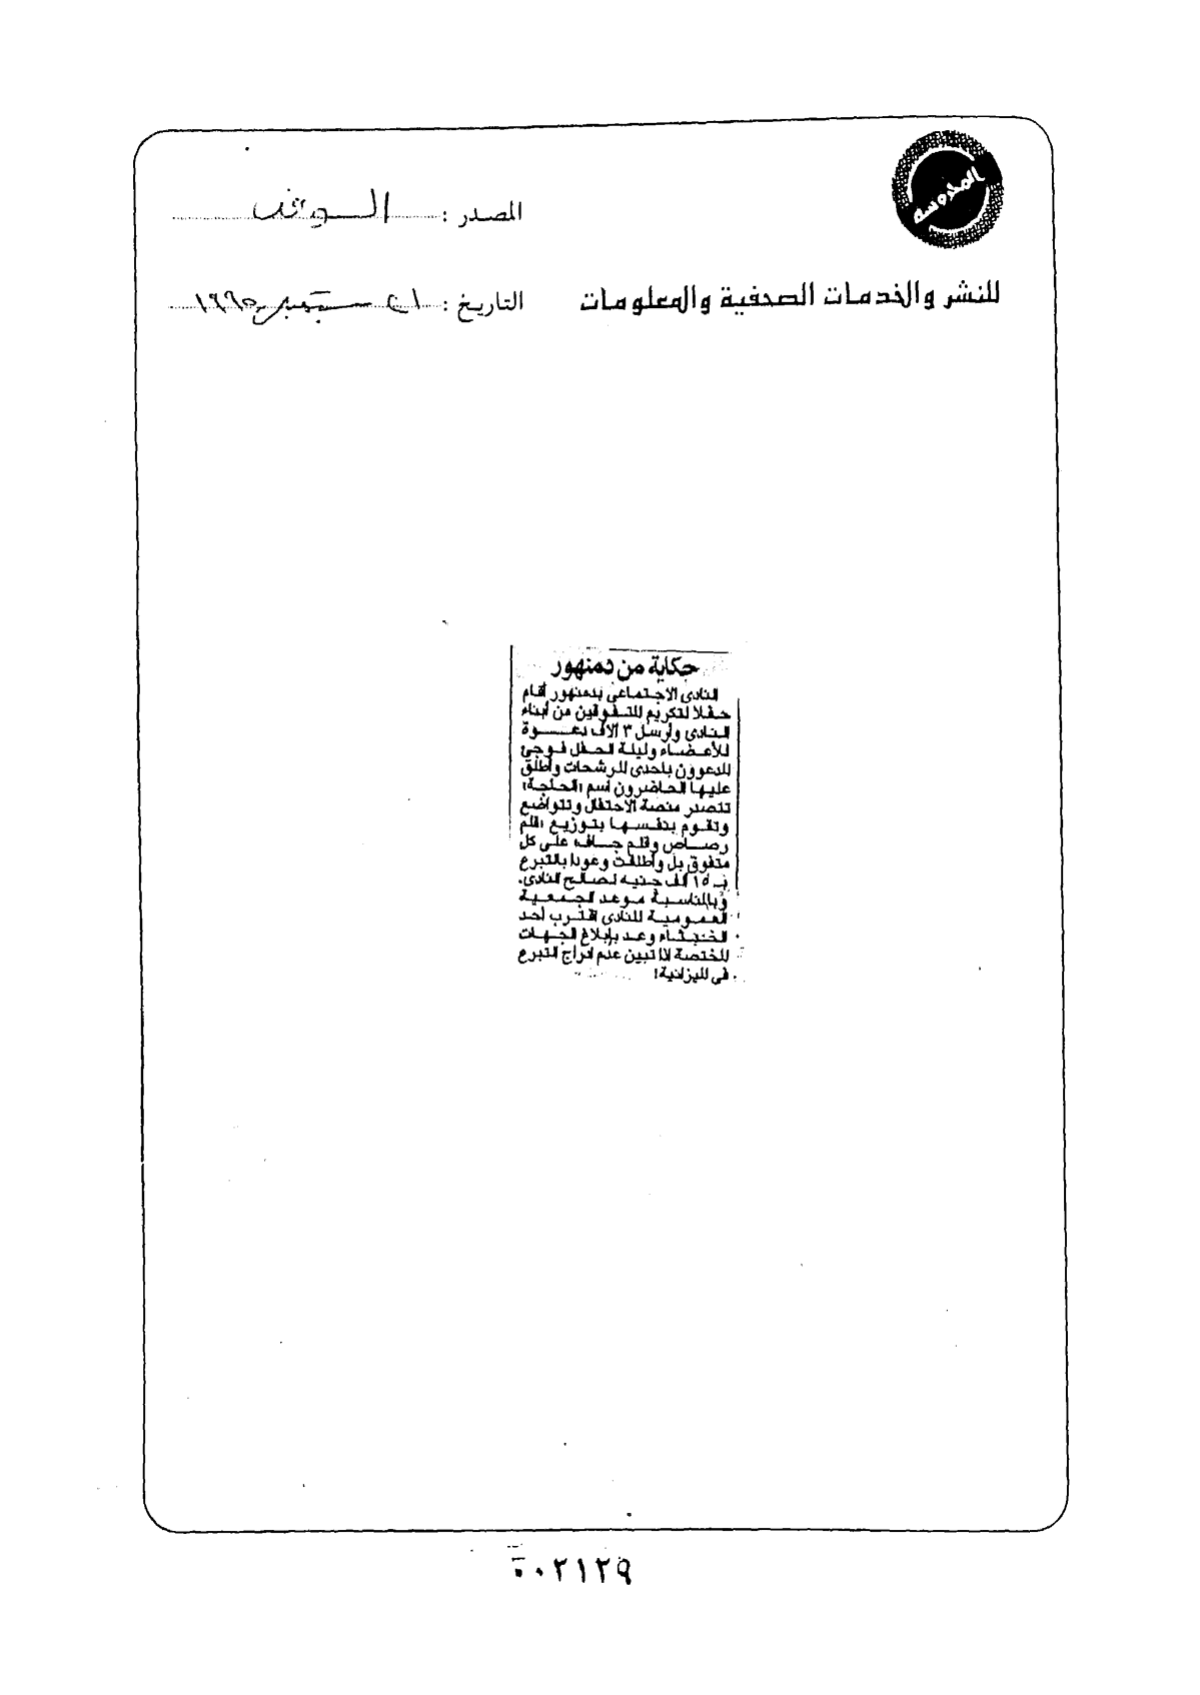 المحروسة
المصدر : الوفد
للنشر والخدمات الصحفية والمعلومات
التاريخ : ٢١ سبتمبر ١٩٩٥
حكاية من دمنهور
النادى الاجتماعى بدمنهور أقام
حفلا لتكريم المتفوقين من أبناء
النادى وأرسل ٣ آلاف دعوة
للأعضاء وليلة الحفل فوجئ
المدعوون بإحدى المرشحات وأطلق
عليها الحاضرون اسم «الحاجة»
تتصدر منصة الاحتفال وتتواضع
وتقوم بنفسها بتوزيع «قلم
رصاص وقلم جاف» على كل
متفوق بل وأطلقت وعودا بالتبرع
بـ ١٥ ألف جنيه لصالح النادى.
وبالمناسبة موعد الجمعية
العمومية للنادى اقترب أحد
الخبثاء وعد بإبلاغ الجهات
المختصة اذا تبين عدم ادراج التبرع
فى الميزانية!
٠٠٢١٢٩